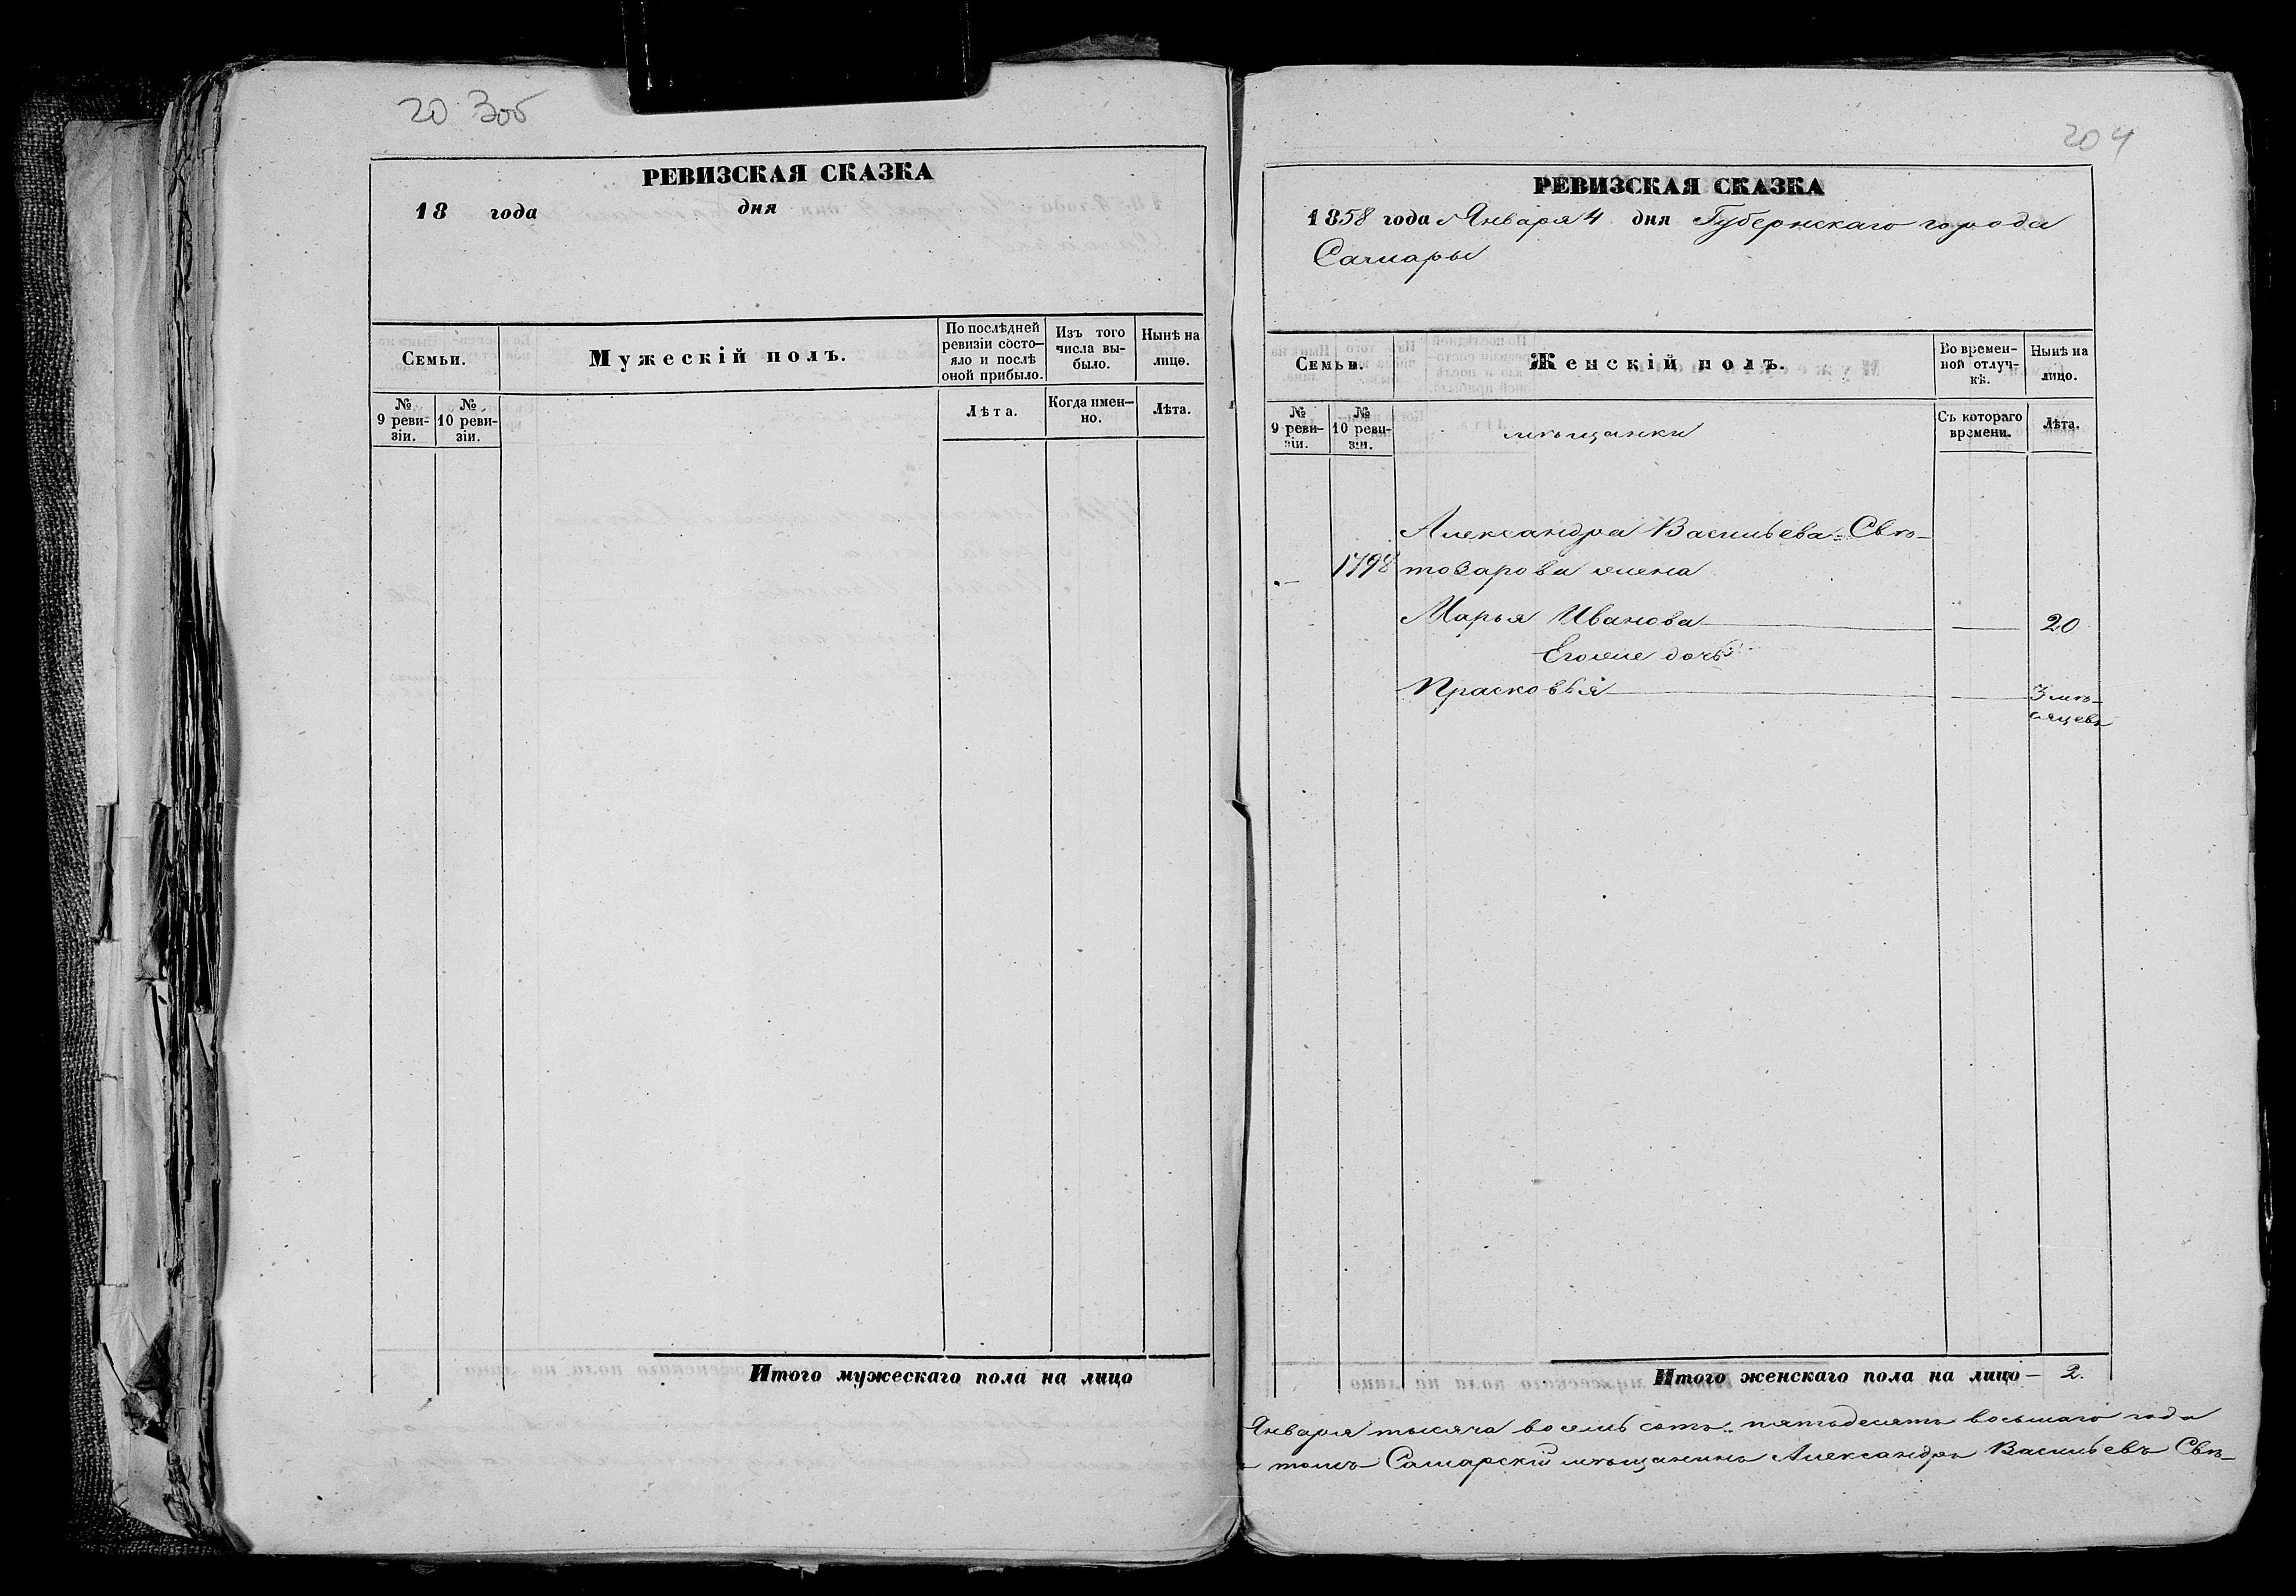 20 3об
РЕВИЗСКАЯ СКАЗКА
18 года дня
Семьи.
Мужескій полъ.
По послѣдней
ревизіи состо-
яло и послѣ
оной прибыло.
Изъ того
числа вы-
было.
Нынѣ на
лицо.
№
9 реви-
зіи.
№
10 реви-
зіи.
Лѣта.
Когда имен-
но.
Лѣта.
Итого мужескаго пола на лицо
204
РЕВИЗСКАЯ СКАЗКА
1858 года Января 4 дня Губернскаго города
Самары
Семьи.
Женскій полъ.
Во времен-
ной отлуч-
кѣ.
Нынѣ на
лицо.
№
9 реви-
зіи.
№
10 реви-
зіи.
мѣщанки
Съ котораго
времени.
Лѣта.
Александра Васильева Свѣ-
1798 тозарова жена
Марья Иванова 20
Егоже дочь
Прасковья 3 мѣ-
сяцевъ
Итого женскаго пола на лицо - 2.
Января тысяча восемь сотъ пятьдесятъ восьмаго года
томъ Самарскій мѣщанинъ Александръ Васильевъ Свѣ-